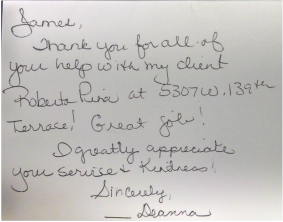 James,
Thank you for all of
your help with my client
Roberta Riva at 5307 W. 139th
Terrace! Great job!
I greatly appreciate
your service & Kindness!
Sincerely,
Deanna